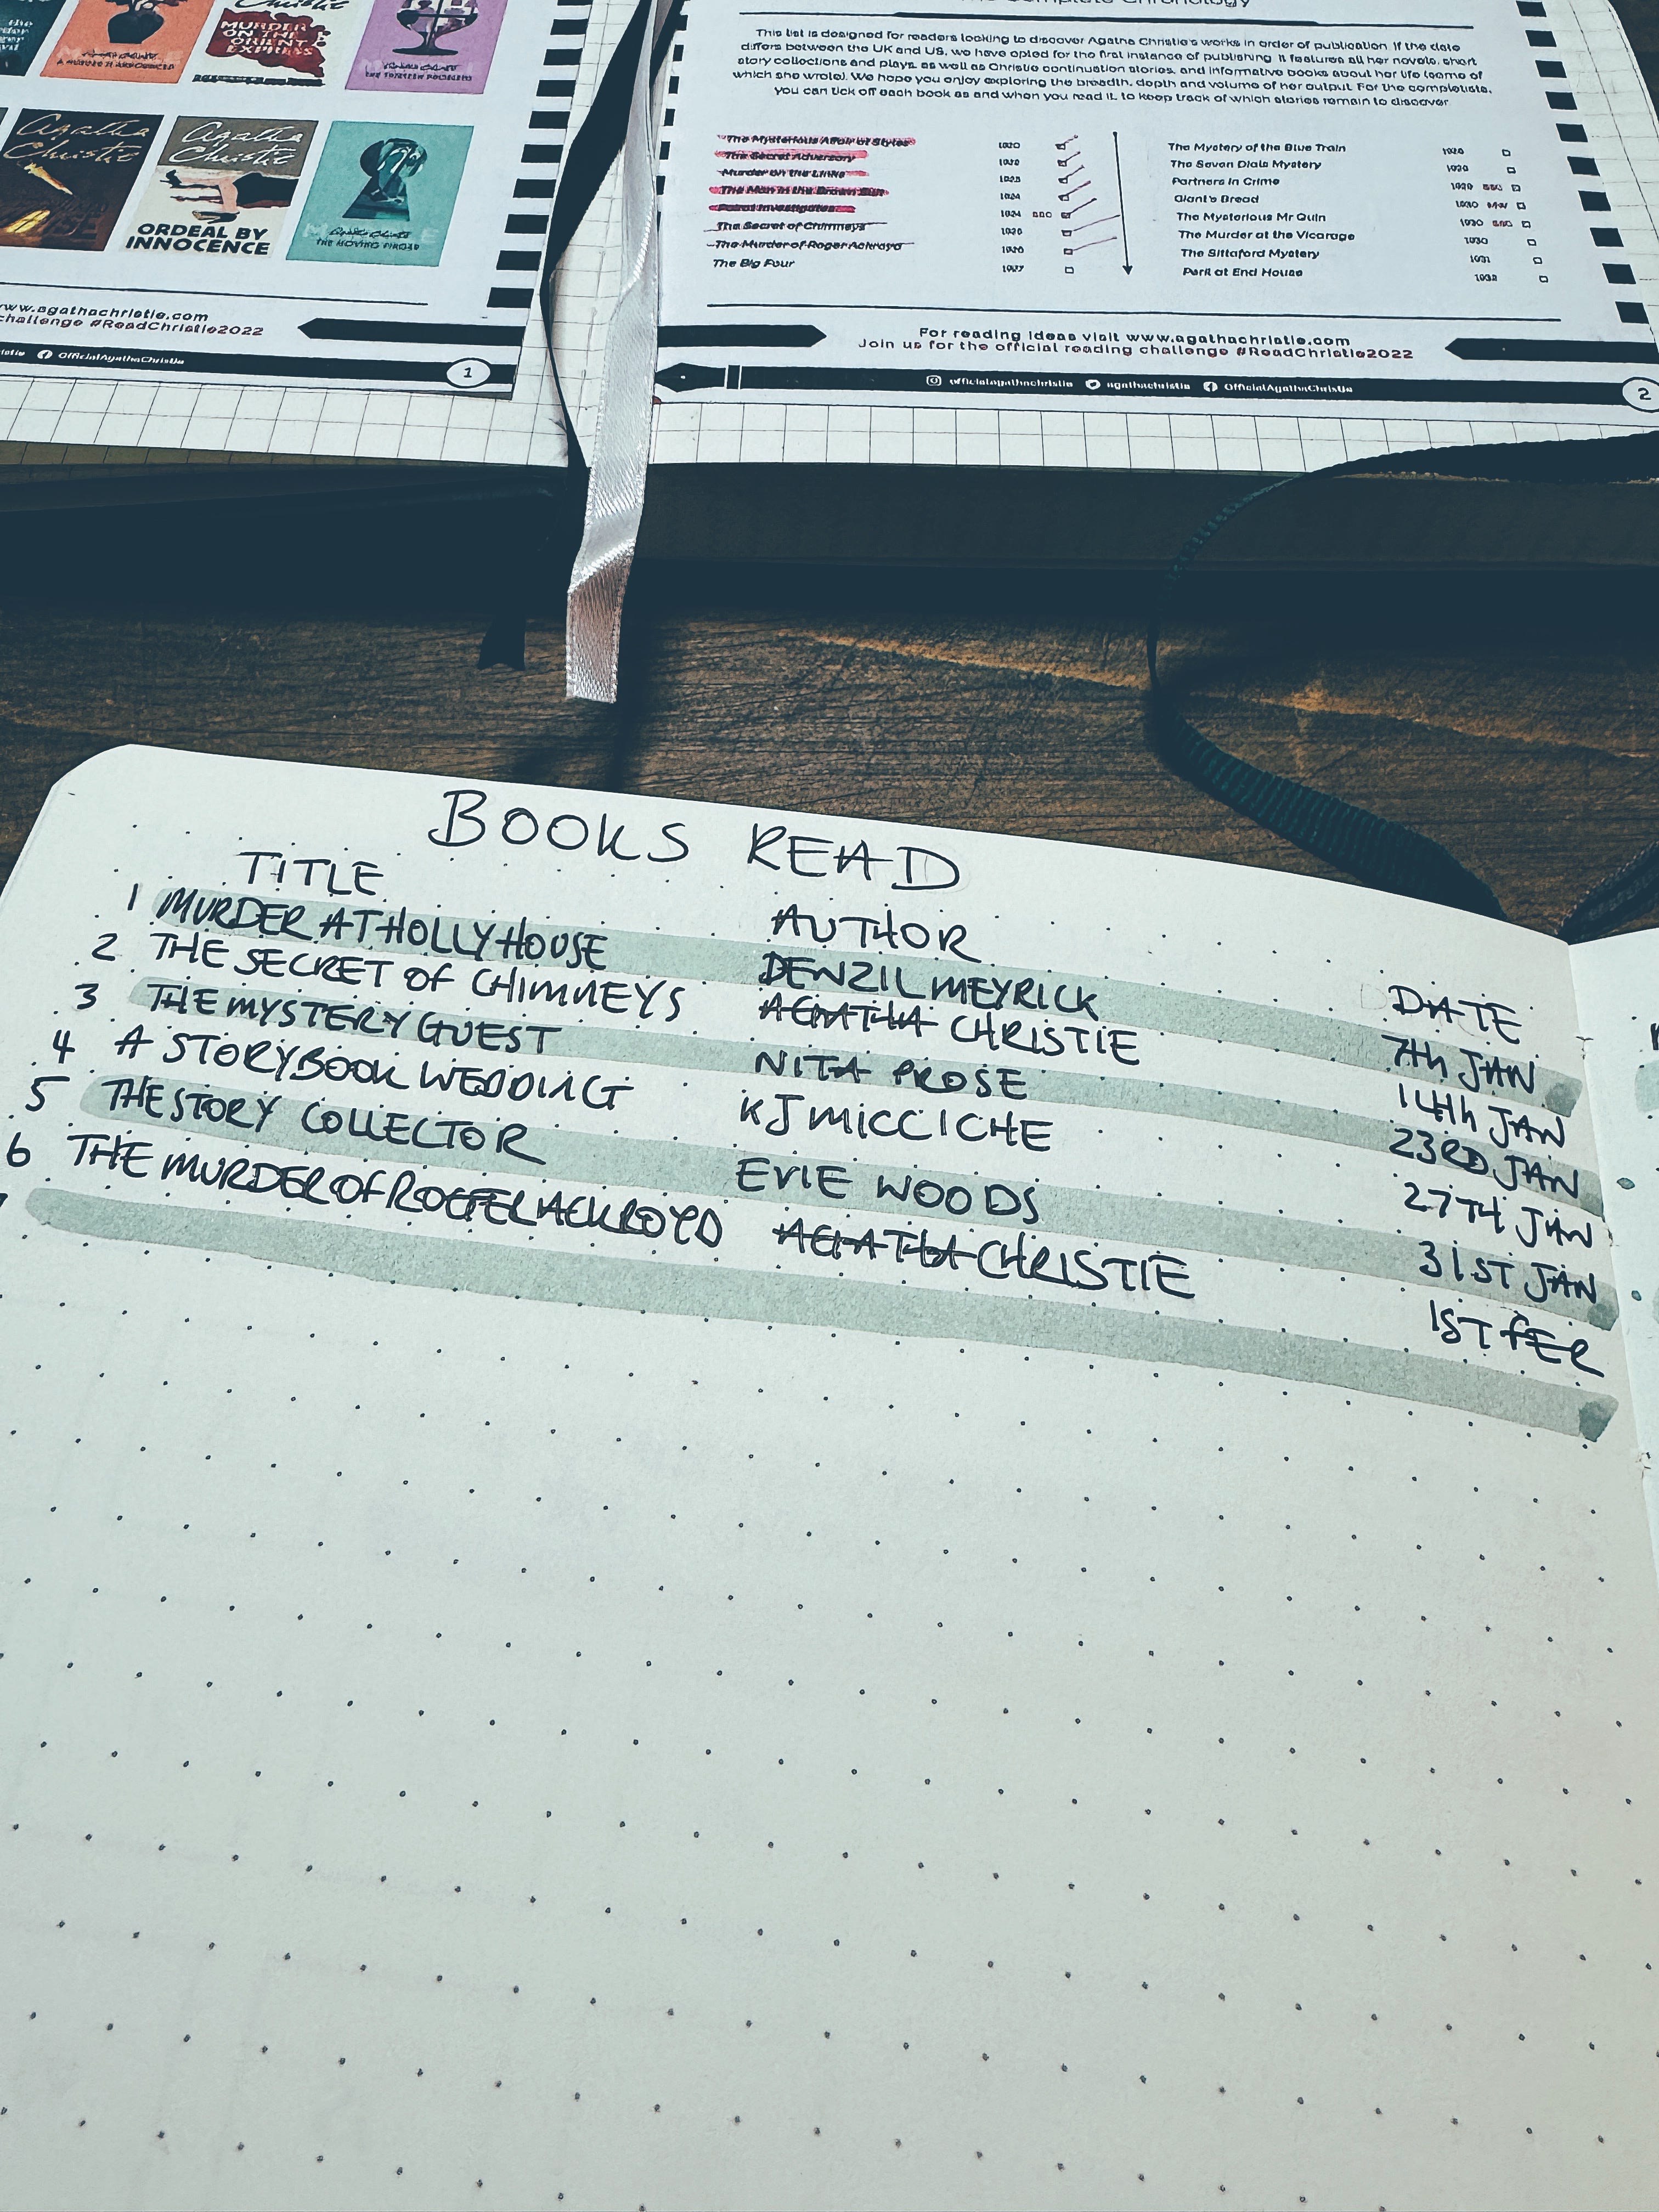 Christie
MURDER
ON THE
ORIENT
EXPRESS
A MURDER IS ANNOUNCED
THE THIRTEEN PROBLEMS
Agatha
Christie
Agatha
Christie
ORDEAL BY
INNOCENCE
THE MOVING FINGER
www.agathachristie.com
challenge #ReadChristie2022
OfficialAgathaChristie
1
Complete Chronology
This list is designed for readers looking to discover Agatha Christie's works in order of publication. If the date
differs between the UK and US, we have opted for the first instance of publishing. It features all her novels, short
story collections and plays, as well as Christie continuation stories, and informative books about her life (some of
which she wrote). We hope you enjoy exploring the breadth, depth and volume of her output. For the completists,
you can tick off each book as and when you read it, to keep track of which stories remain to discover.
The Mysterious Affair at Styles 1920
The Secret Adversary
Murder on the Links 1923
The Man in the Brown Suit 1924
Poirot Investigates 1924
The Secret of Chimneys 1925
The Murder of Roger Ackroyd 1926
The Big Four 1927
The Mystery of the Blue Train 1928
The Seven Dials Mystery 1929
Partners in Crime 1929
Giant's Bread 1930
The Mysterious Mr Quin 1930
The Murder at the Vicarage 1930
The Sittaford Mystery 1931
Peril at End House 1932
For reading ideas visit www.agathachristie.com
Join us for the official reading challenge #ReadChristie2022
officialagathachristie agathachristie OfficialAgathaChristie
2
BOOKS READ
TITLE AUTHOR DATE
1 MURDER AT HOLLY HOUSE DENZIL MEYRICK 7th JAN
2 THE SECRET OF CHIMNEYS AGATHA CHRISTIE 14th JAN
3 THE MYSTERY GUEST NITA PROSE 23RD JAN
4 A STORYBOOK WEDDING KJ MICCICHE 27TH JAN
5 THE STORY COLLECTOR EVIE WOODS 31ST JAN
6 THE MURDER OF ROGER ACKROYD AGATHA CHRISTIE 1ST FEB